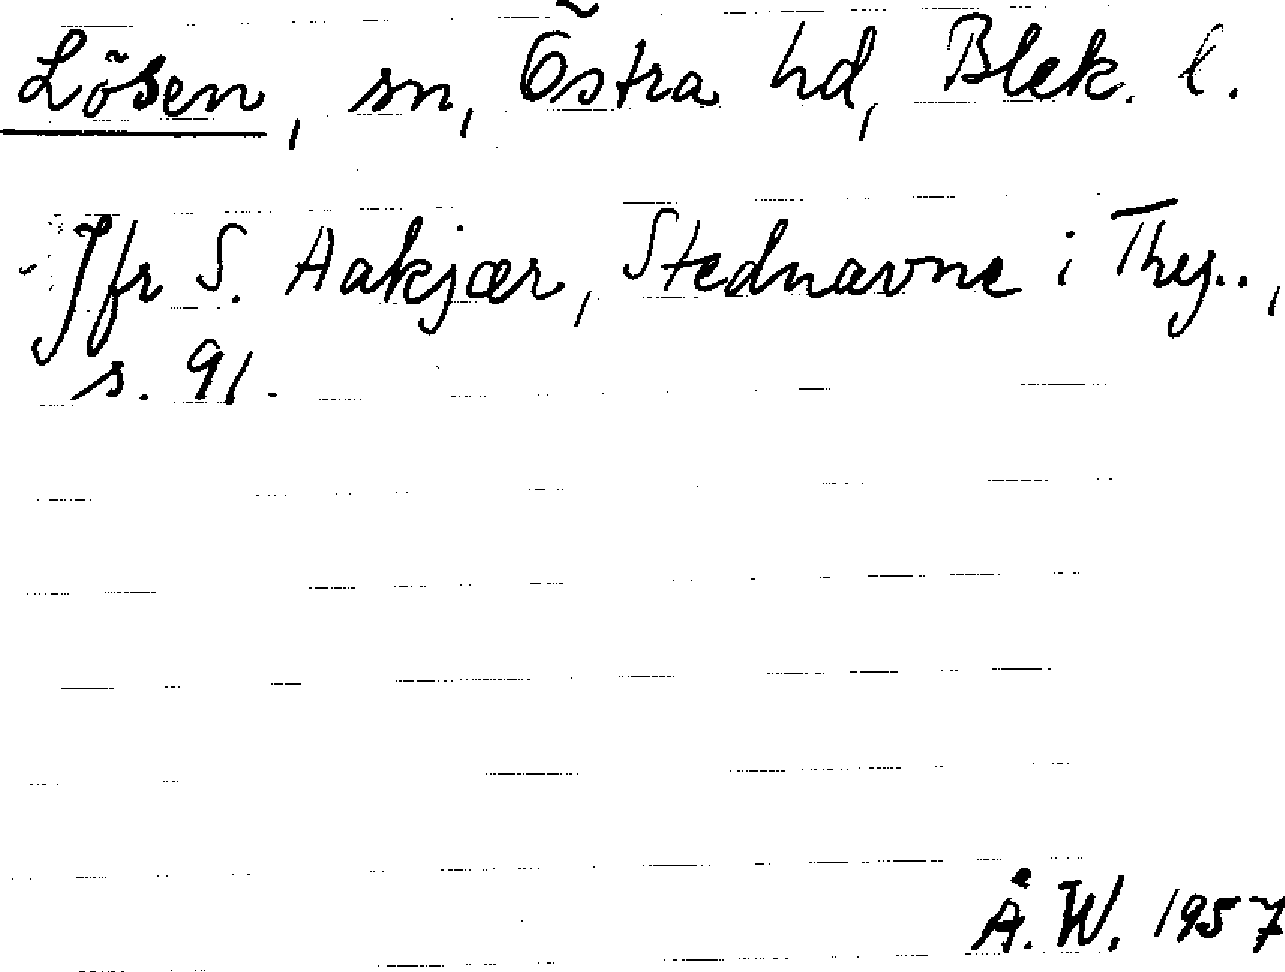 Lösen, sn, Östra hd, Blek. l.
Jfr S. Aakjær, Stednavne i Thy..,
s. 91.
Å. W. 1957